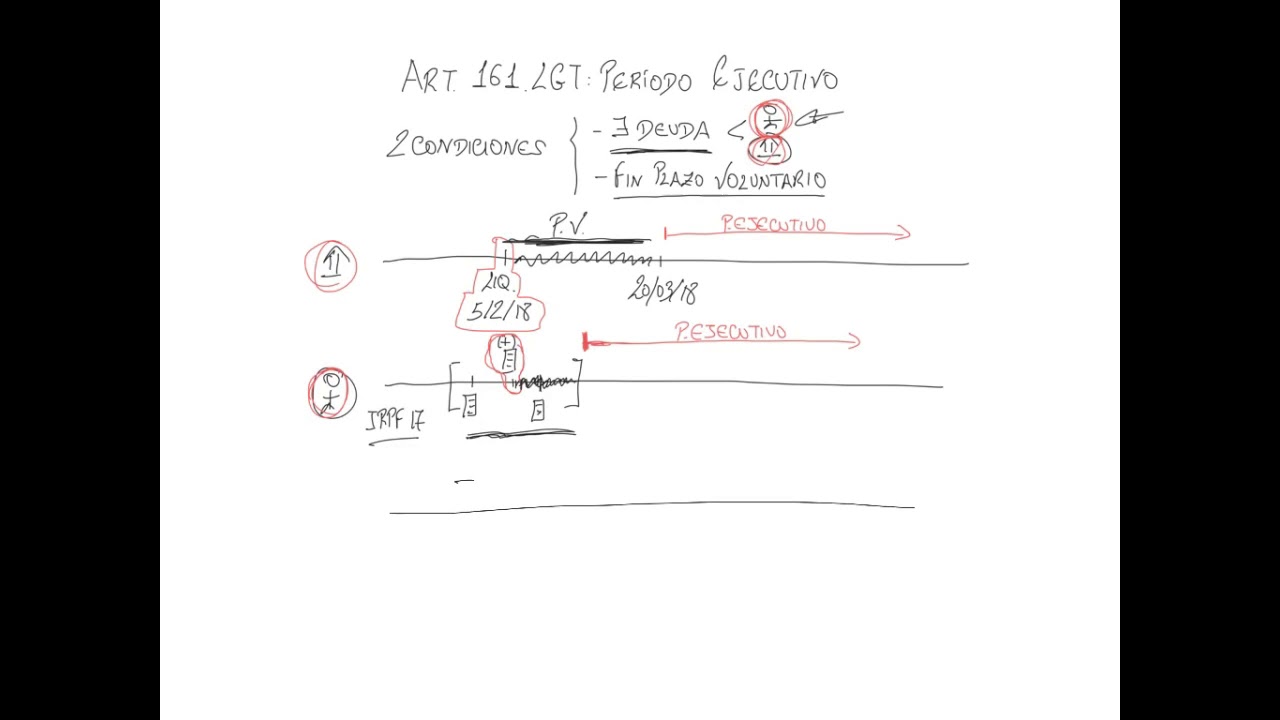 ART. 161. LGT: PERÍODO EJECUTIVO
2 CONDICIONES
- ∃ DEUDA <
- FIN PLAZO VOLUNTARIO
P.V.
P.EJECUTIVO
LIQ.
5/2/18
20/03/18
P.EJECUTIVO
(+)
IRPF 17